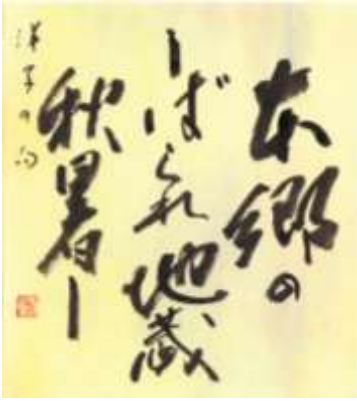 本郷の
しばられ地蔵
秋暑し
洋子の句